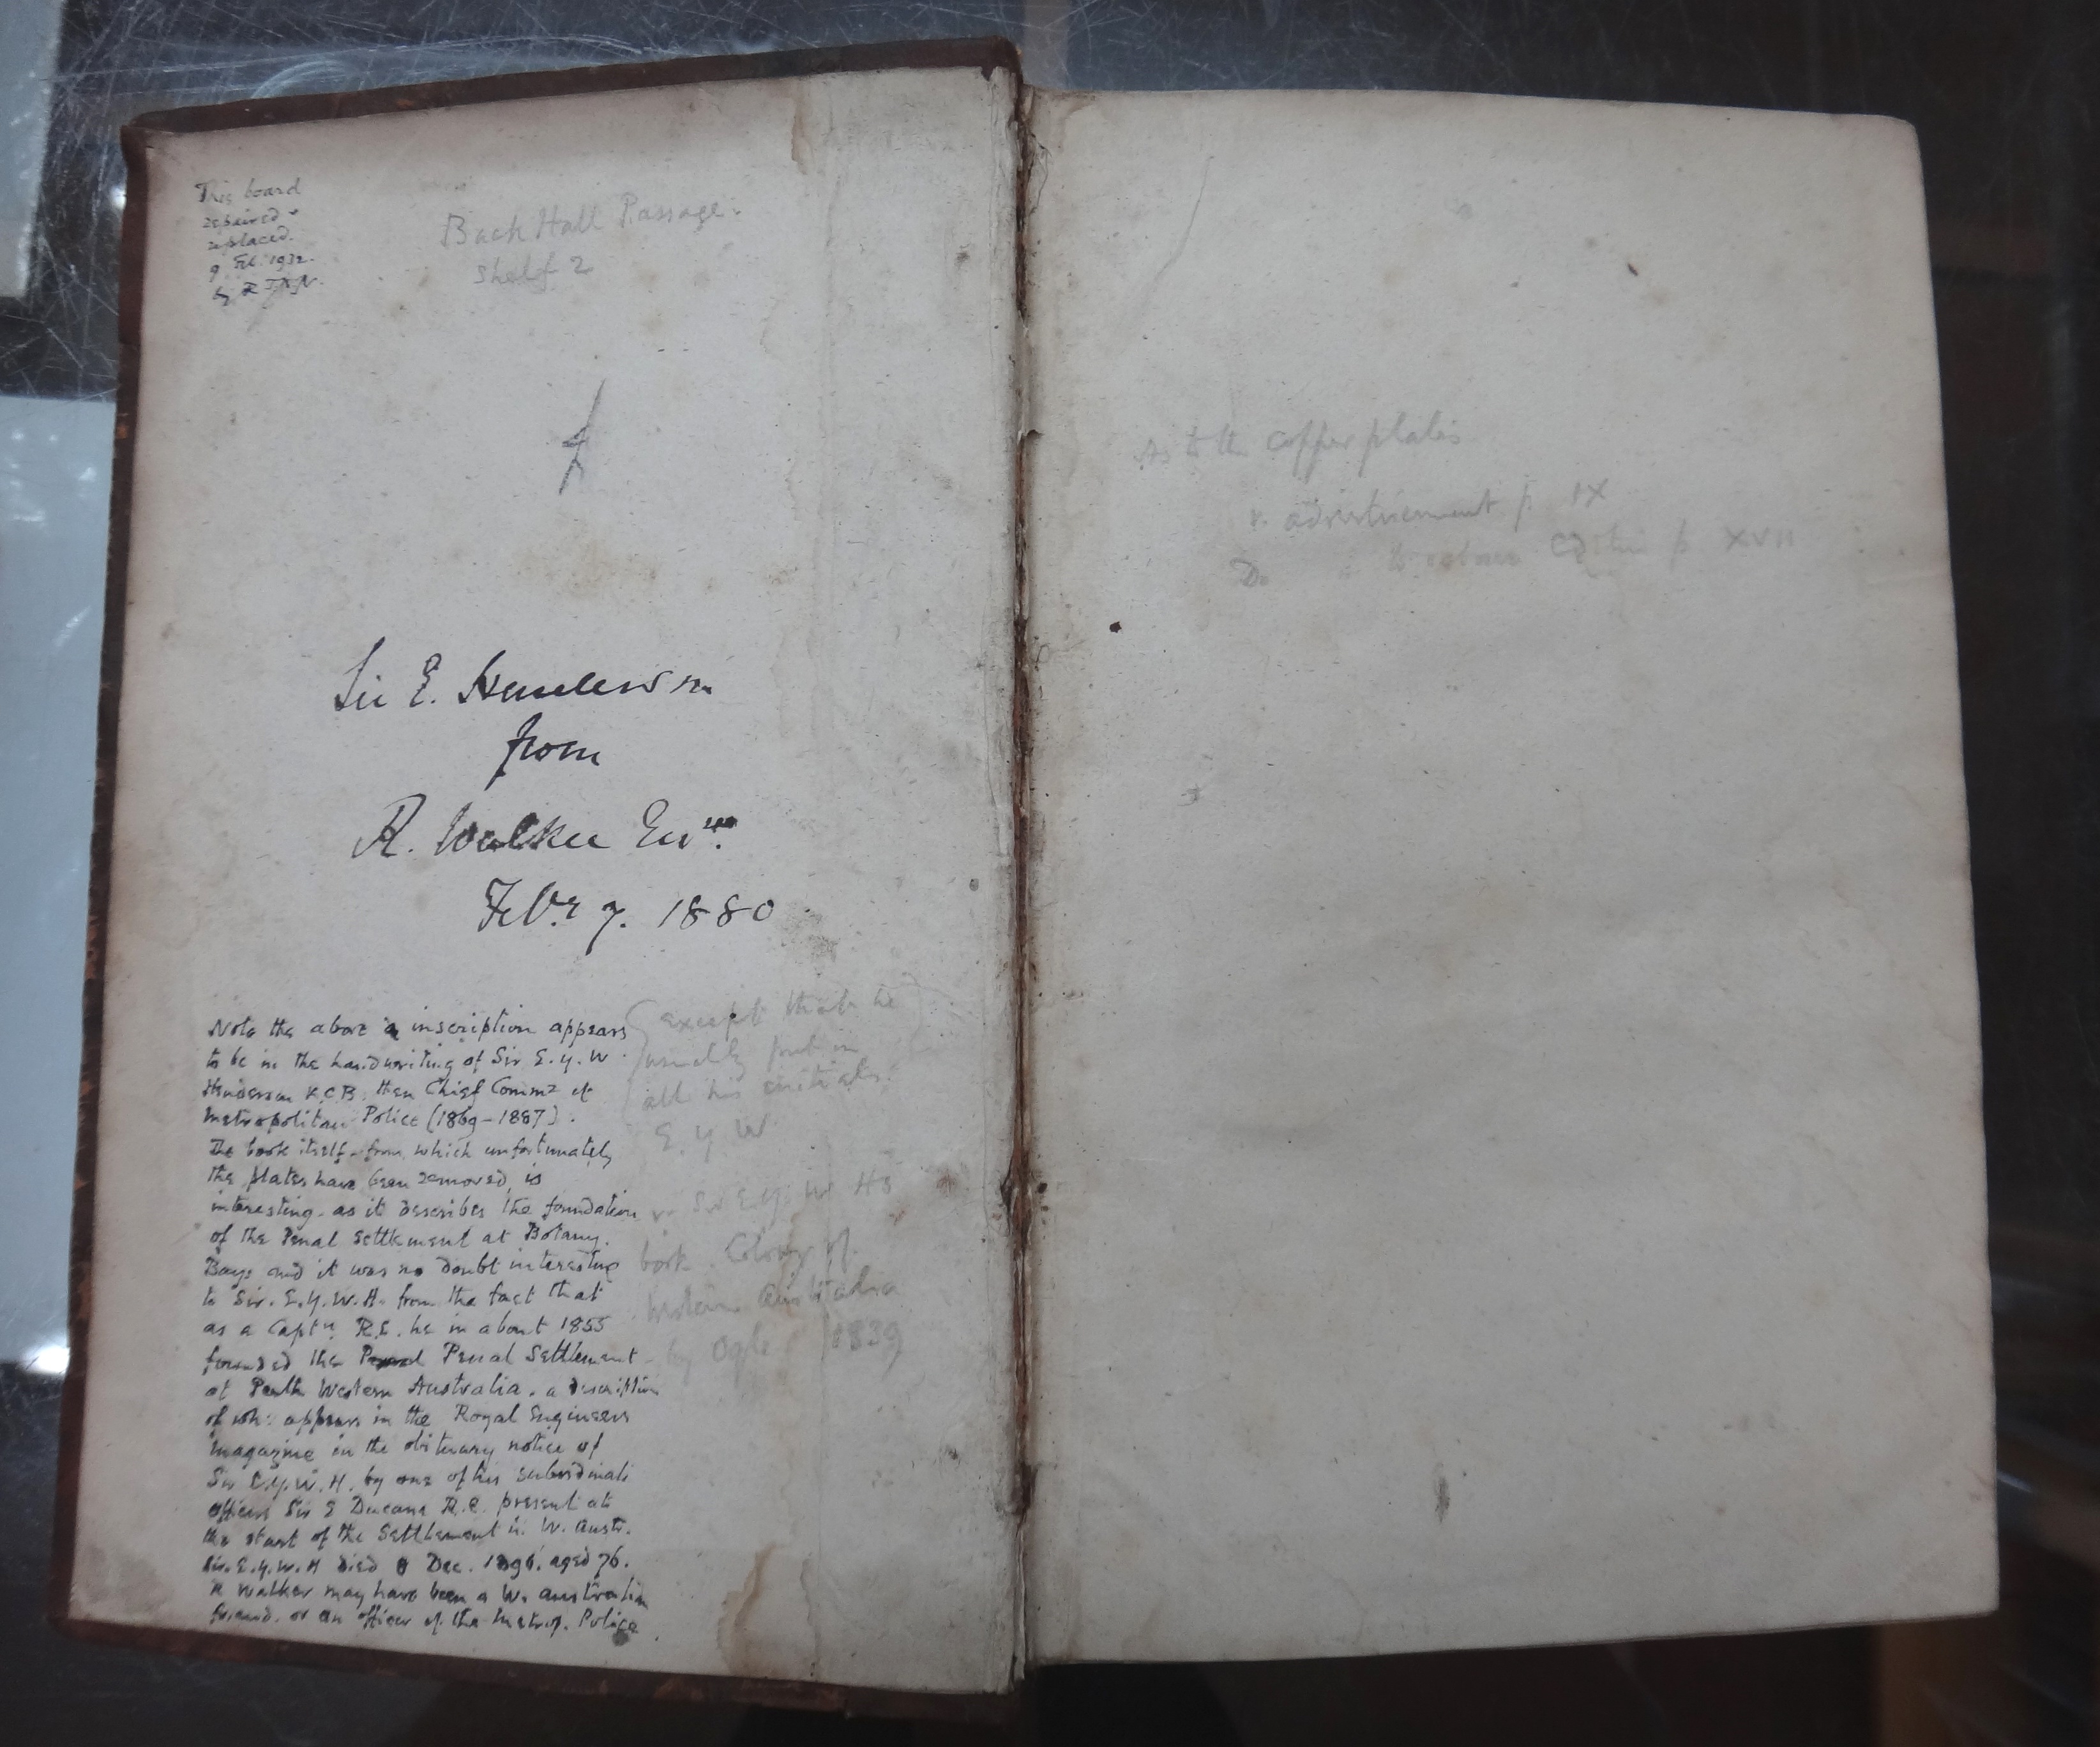 This board
repaired &
replaced.
9 Feb. 1932.
by
Back Hall Passage.
Shelf 2
Sir E. Henderson
from
R. Walker Esqre.
Feby 7. 1880
Note the above inscription appears
to be in the handwriting of Sir E.Y.W.
Henderson K.C.B. then Chief Commr of
Metropolitan Police (1869–1887).
The book itself – from which unfortunately
the plates have been removed, is
interesting – as it describes the foundation
of the Penal Settlement at Botany.
Bay and it was no doubt interesting
to Sir. E.Y.W.H. from the fact that
as a Captn. R.E. he in about 1855
founded the Penal Settlement
at Perth Western Australia – a description
of wh: appears in the Royal Engineers
Magazine in the obituary notice of
Sir E.Y.W.H. by one of his subordinate
officers Sir E Ducane R.E. present at
the start of the Settlement in W. Austr.
Sir. E.Y.W.H died 8 Dec. 1896. aged 76.
R Walker may have been a W. Australian
friend. or an officer of the Metrop. Police.
(except that he
usually put in
all his initials.
E Y W
v. Sir E.Y.W H's
book Colony of
Western Australia
by Ogle 1839
As to the copper plates
v. advertisement p. IX
Do p. XVII